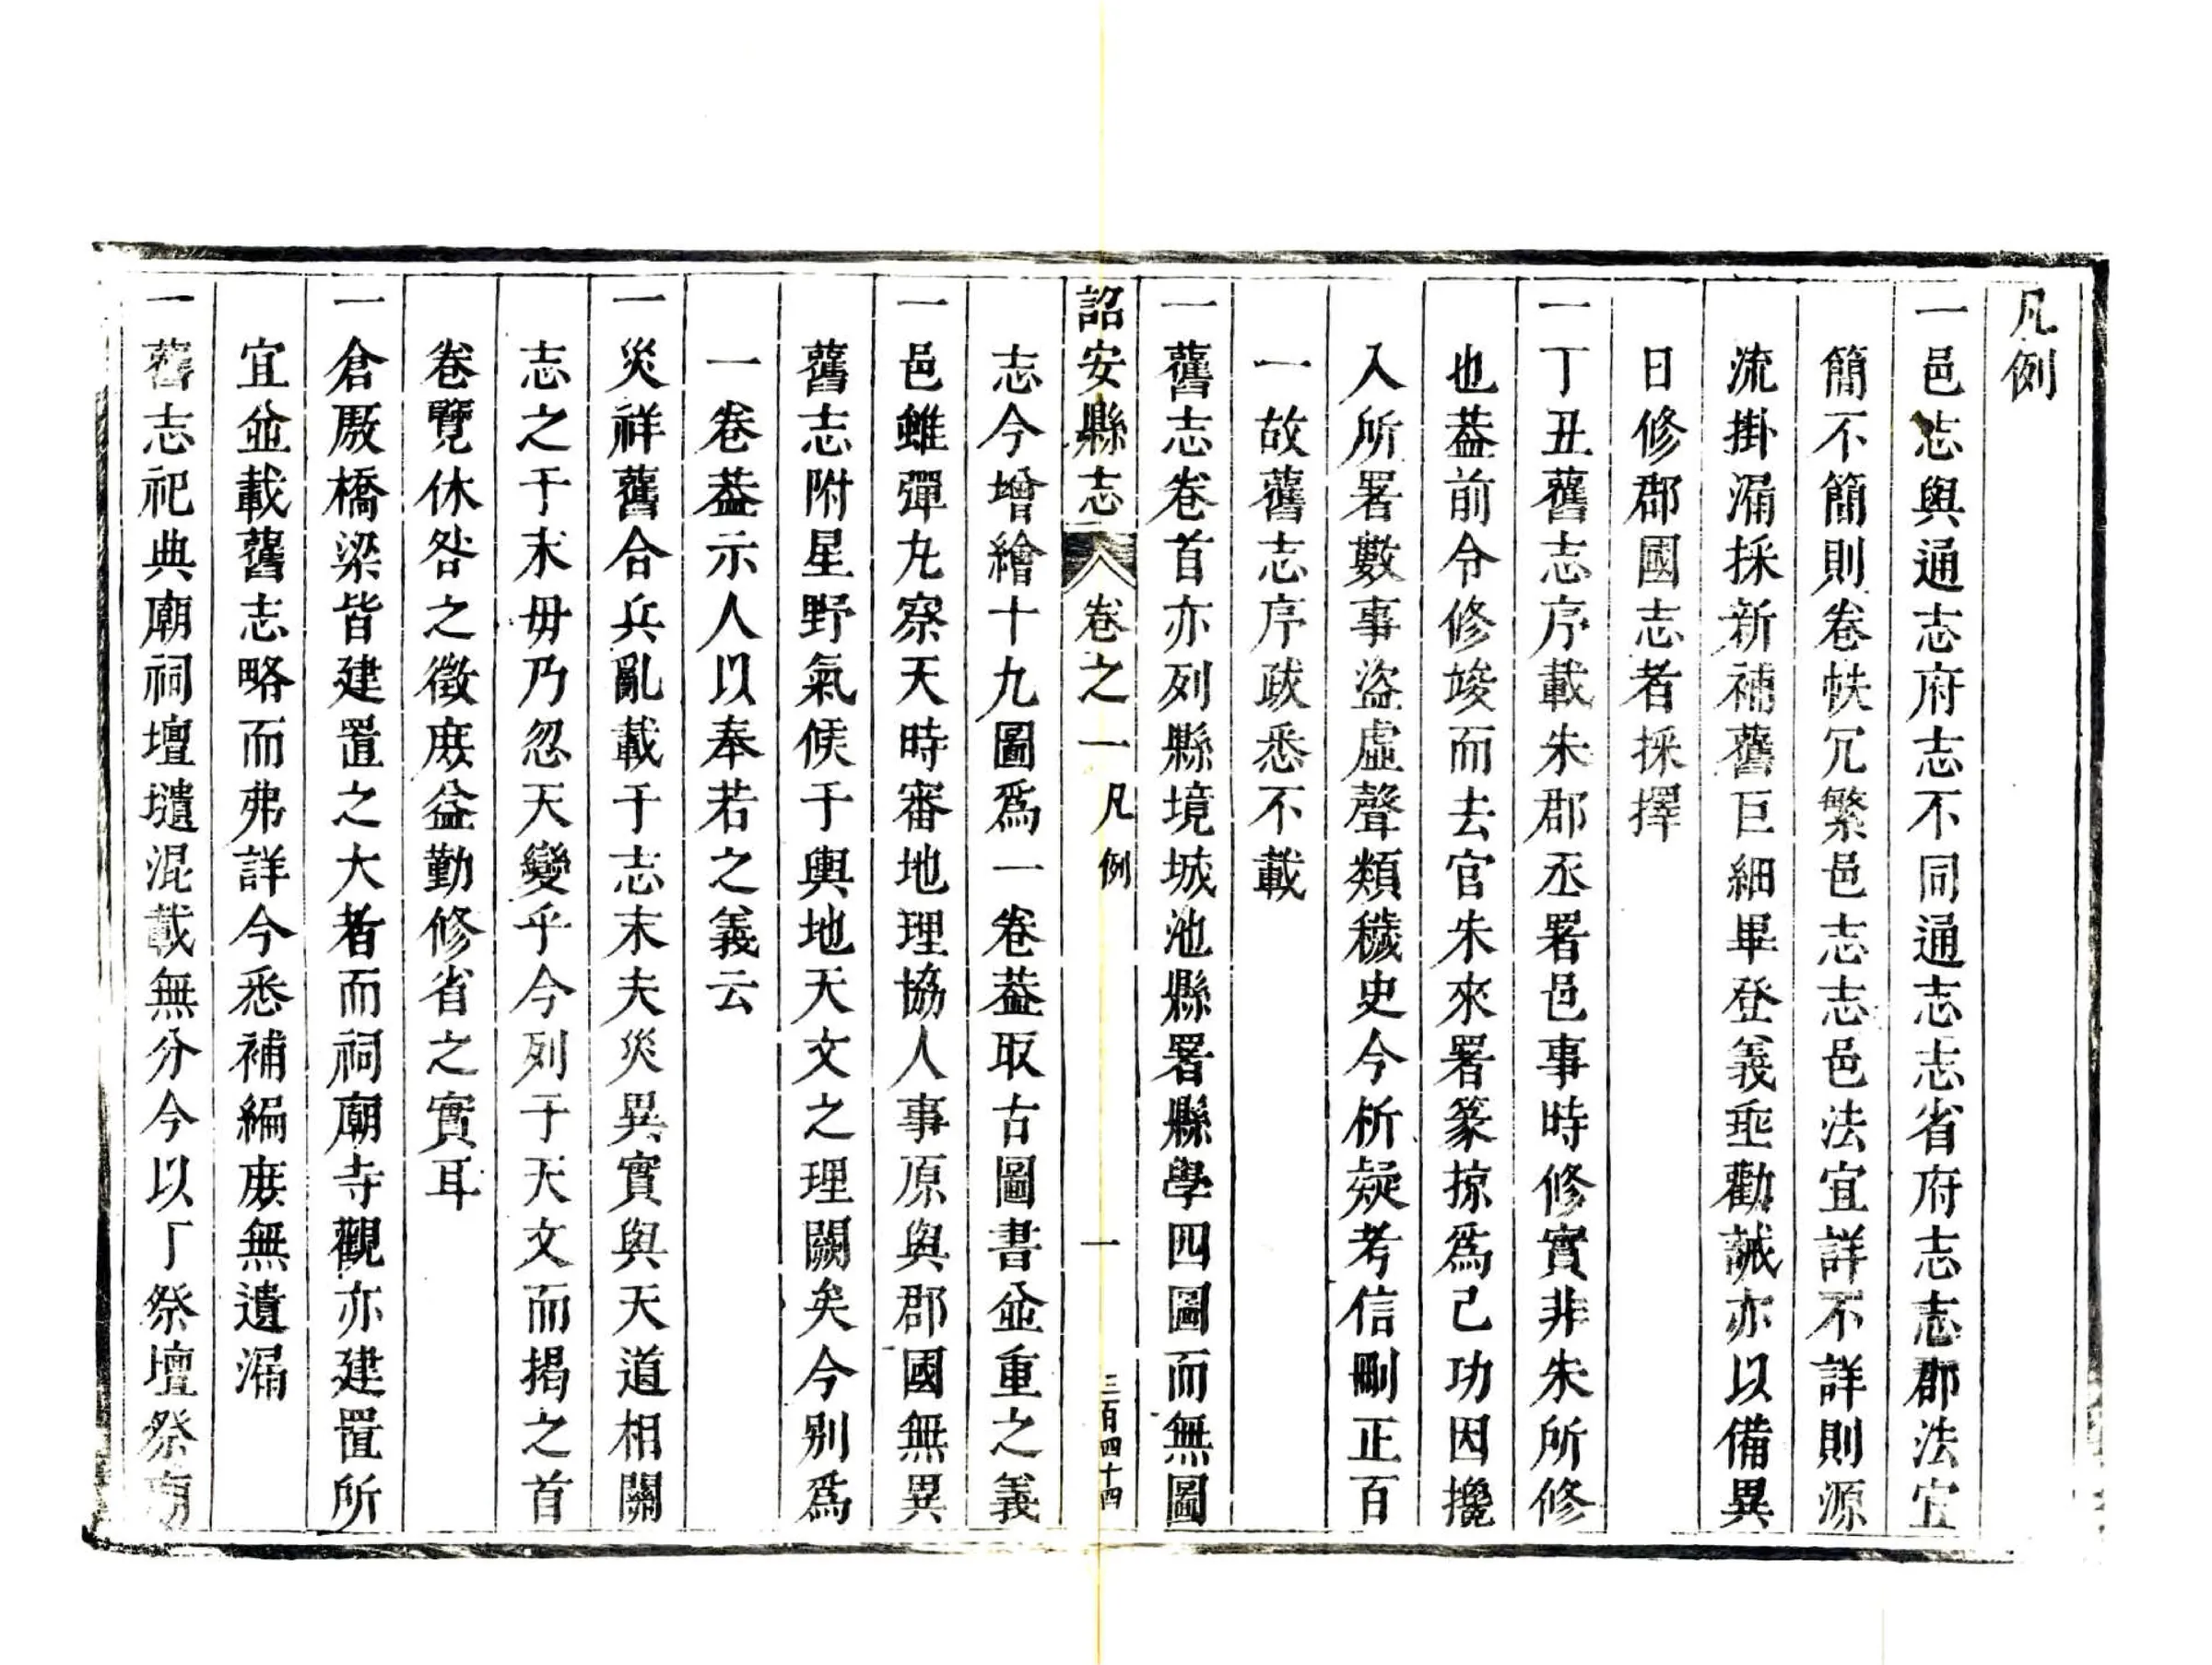 凡例
一邑志與通志府志不同通志志省府志志郡法宜
簡不簡則卷帙冗繁邑志志邑法宜詳不詳則源
流掛漏採新補舊巨細畢登義埀勸誡亦以備異
日修郡國志者採擇
一丁丑舊志序載朱郡丞署邑事時修實非朱所修
也葢前令修竣而去官朱來署篆掠爲己功因攙
入所署數事盜虛聲類穢史今析疑考信刪正百
一故舊志序跋悉不載
一舊志卷首亦列縣境城池縣署縣學四圖而無圖
詔安縣志 卷之一 凡例 一 三百四十四
志今增繪十九圖爲一卷葢取古圖書並重之義
一邑雖彈丸察天時審地理協人事原與郡國無異
舊志附星野氣候于輿地天文之理闕矣今别爲
一卷葢示人以奉若之義云
一災祥舊合兵亂載于志末夫災異實與天道相關
志之于末毋乃忽天變乎今列于天文而揭之首
卷覽休咎之徵庻益勤修省之實耳
一倉厫橋梁皆建置之大者而祠廟寺觀亦建置所
宜並載舊志略而弗詳今悉補編庻無遺漏
一舊志祀典廟祠壇壝混載無分今以丁祭壇祭廟